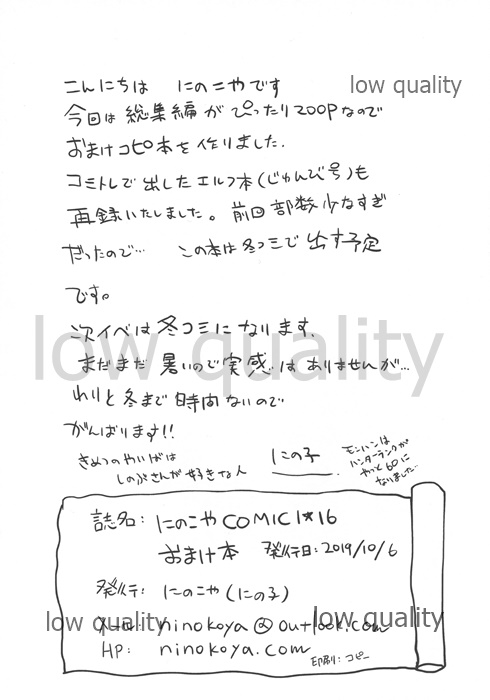 こんにちは にのこやです
low quality
今回は総集編がぴったり200Pなので
おまけコピ本を作りました.
コミトレで出したエルフ本(じゅんび号)も
再録いたしました。前回部数少なすぎ
だったので… この本は冬コミで出す予定
です。
low quality
次イベは冬コミになります.
まだまだ暑いので実感はありませんが…
わりと冬まで時間ないので
がんばります!!
きめつのやいばは
しのぶさんが好きな人
にの子
モンハンは
ハンターランクが
やっと60に
なりました…
誌名: にのこやCOMIC1★16
おまけ本 発行日: 2019/10/6
発行: にのこや(にの子)
low quality
low quality
メール: ninokoya@outlook.com
HP: ninokoya.com
印刷: コピー